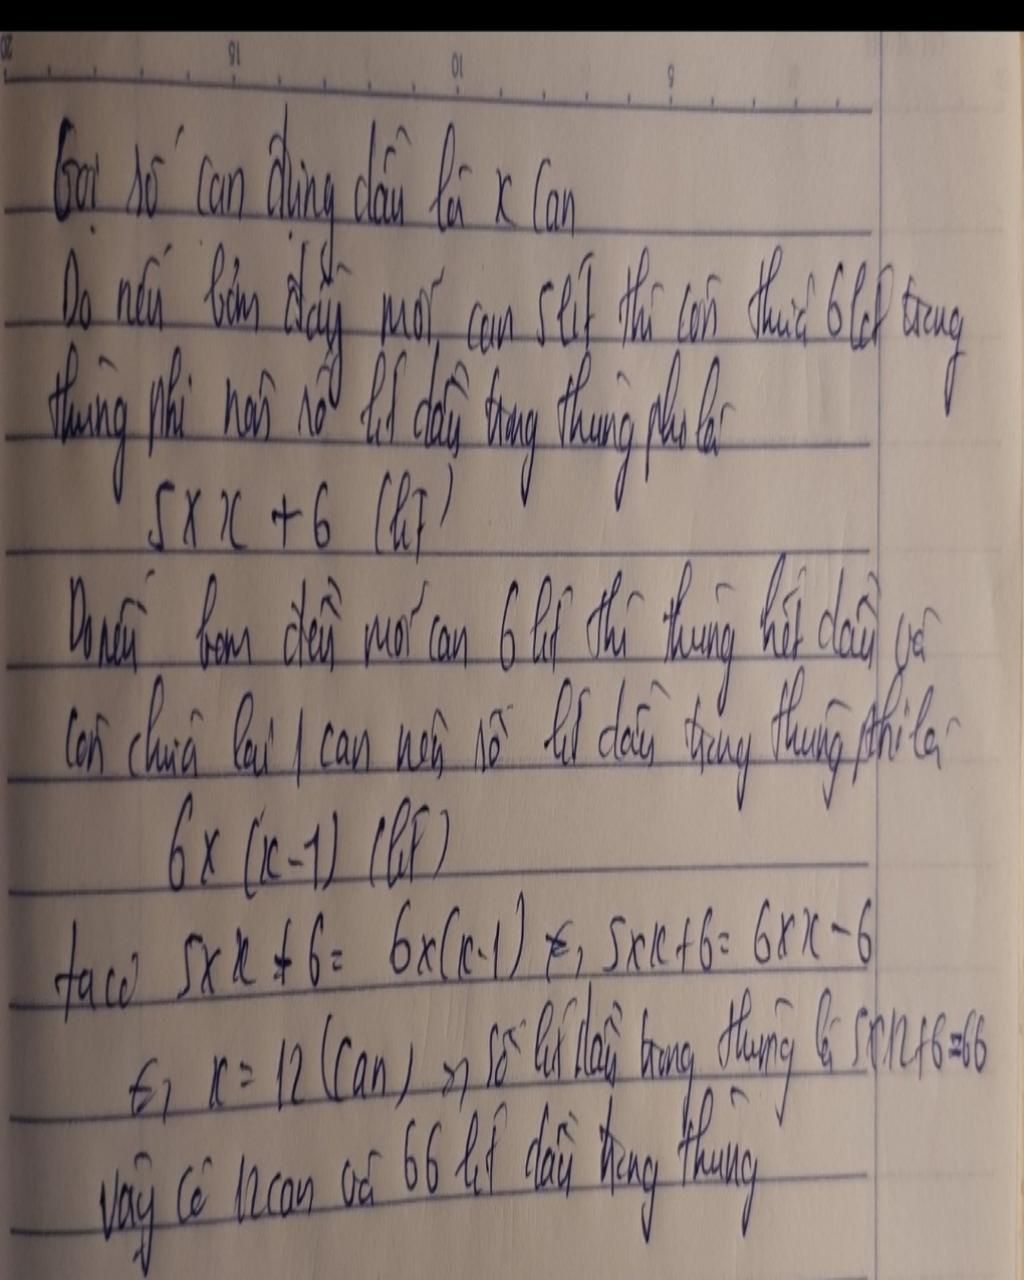 20 15 10 5
Gọi số can đựng dầu là x can
Do nếu bơm đầy mỗi can 5 lít thì còn thừa 6 lít trong
thùng phi nên số lít dầu trong thùng phi là
5 x x + 6 (lít)
Do nếu bơm đều mỗi can 6 lít thì thùng hết dầu và
còn thừa lại 1 can nên số lít dầu trong thùng phi là
6 x (x-1) (lít)
ta có 5 x x + 6 = 6 x (x-1) <=> 5 x x + 6 = 6 x x - 6
<=> x = 12 (can) => số lít dầu trong thùng là 5 x 12 + 6 = 66
vậy có 12 can và 66 lít dầu trong thùng